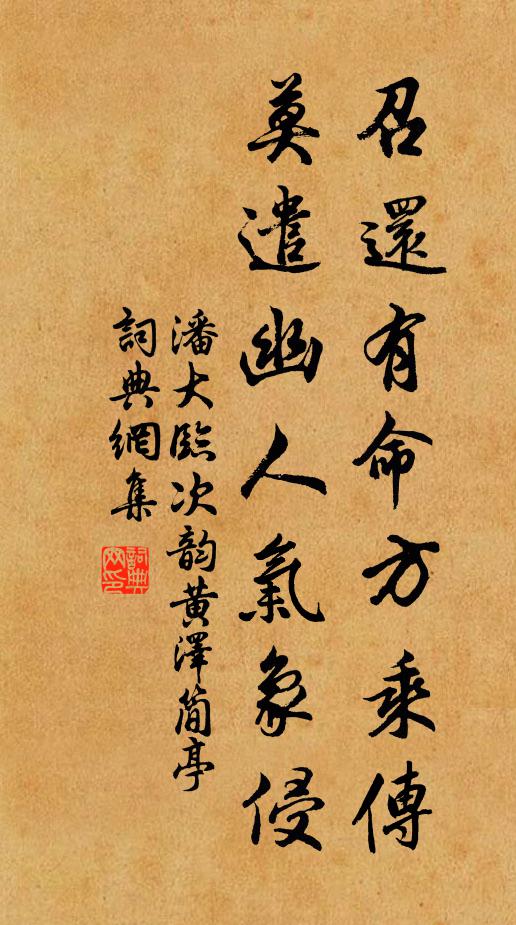 召還有命方乘傳
莫遣幽人氣象侵
潘大臨次韵黄澤簡亭
詞典網集
詞典网印